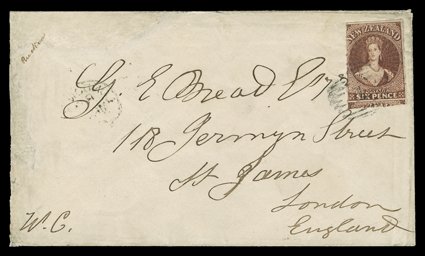 NEW ZEALAND
SIX PENCE
G. E. Mead Esqr
118 Jermyn Street
St James
London
England
W.C.